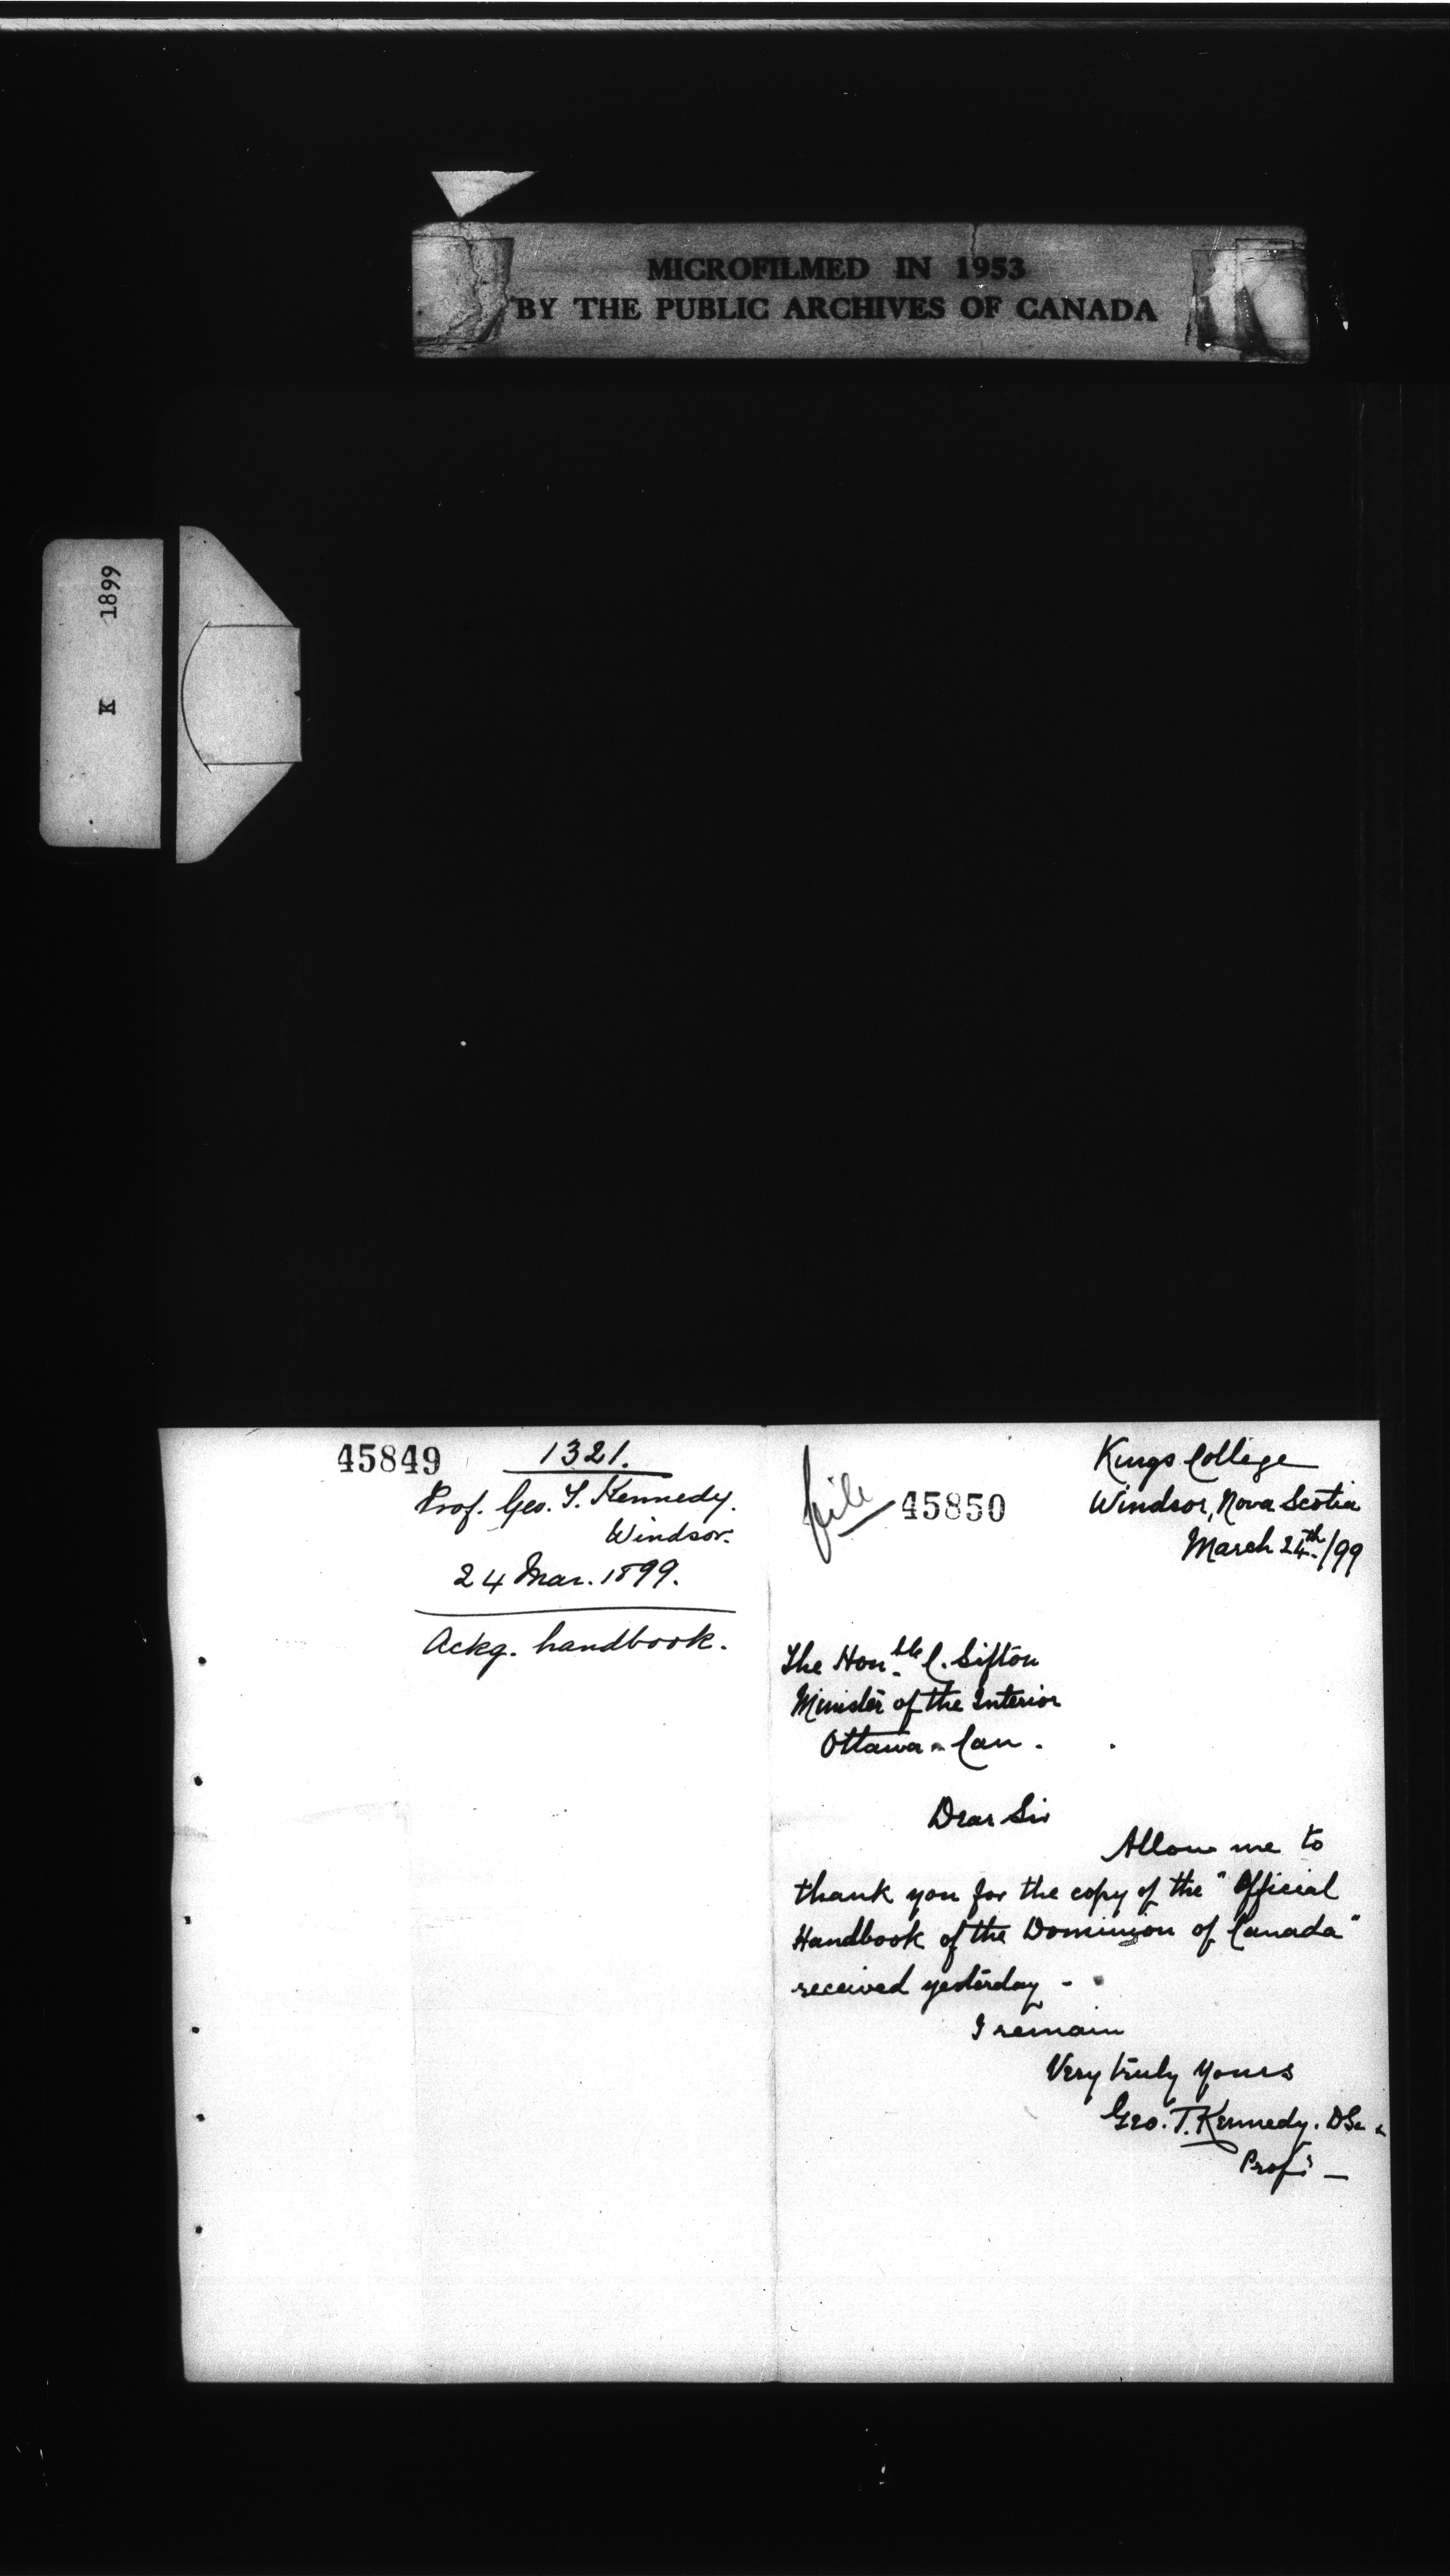 MICROFILMED IN 1953
BY THE PUBLIC ARCHIVES OF CANADA
K 1899
45849
1321.
Prof. Geo. T. Kennedy.
Windsor.
24 Mar. 1899.
Ackg. handbook.
file
45850
Kings College
Windsor, Nova Scotia
March 24th./99
The Hon.ble C. Sifton
Minister of the Interior
Ottawa - Can.
Dear Sir
Allow me to
thank you for the copy of the "Official
Handbook of the Dominion of Canada"
received yesterday -
I remain
Very truly yours
Geo. T. Kennedy. DSc
Prof. -